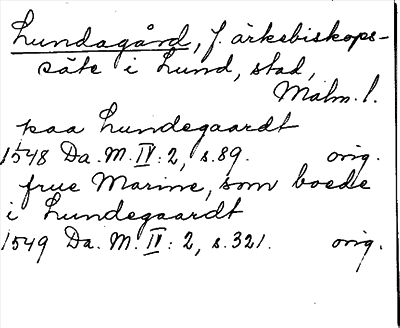 Lundagård, f. ärkebiskops-
säte i Lund, stad,
Malm. l.
paa Lundegaardt
1548 Da. M. IV: 2, s. 89. orig.
frue Marine, som boede
i Lundegaardt
1549 Da. M. IV: 2, s. 321. orig.